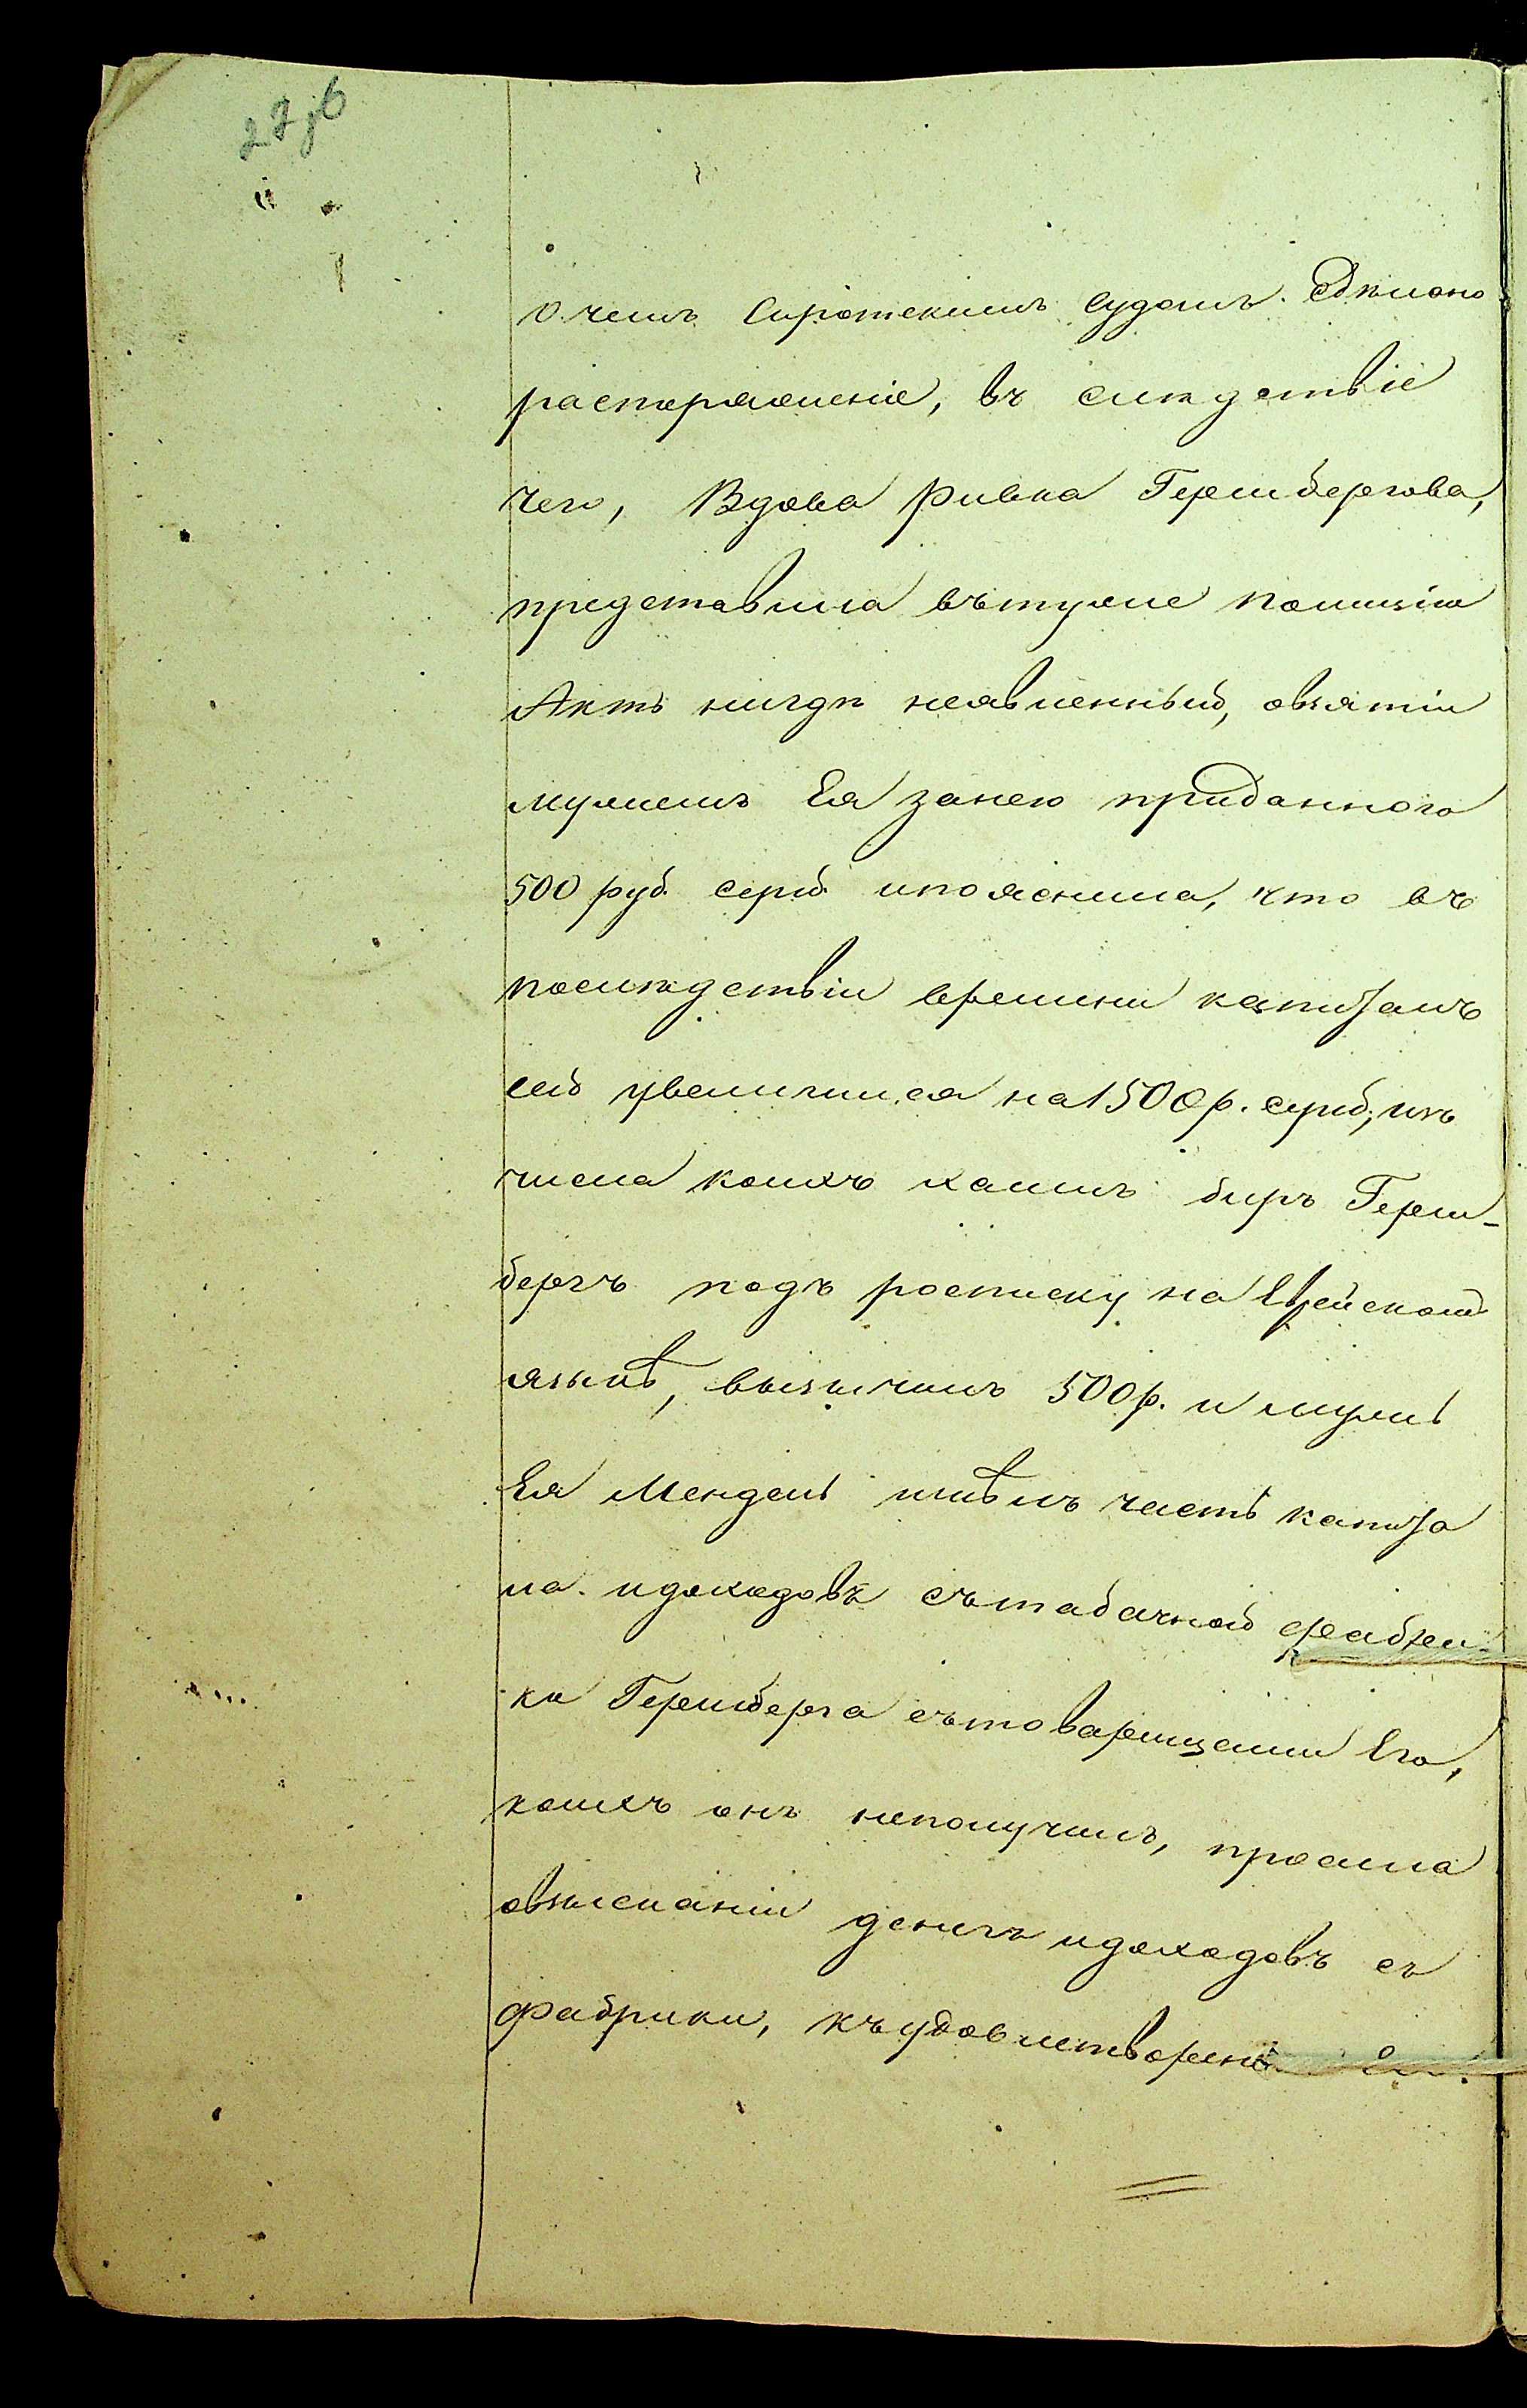 22 об
о чемъ Сиротскимъ Судомъ. Сдѣлано
распоряженіе, въ слѣдствіе
чего, Вдова Ривка Гершбергова,
представила въ туже полицію
Актъ нигдѣ неявленный, овзятіи
мужемъ Ея занею приданного
500 руб. сереб. ипояснила, что въ
послѣдствіи времини капиталъ
сей увеличился на 1500 р. сереб., изъ
числа коихъ Хаимъ Беръ Герш-
бергъ подъ росписку на Еврейскомъ
языкѣ, вызычилъ 500 р. и мужъ
Ея Мендель имѣлъ часть капита
ла. идоходовъ стабачной фабри-
ки Гершберга съ товарищами Его,
коихъ онъ неполучилъ, просила
овзысканіи денегъ идоходовъ съ
фабрики, къ удовлетворенію Ея.